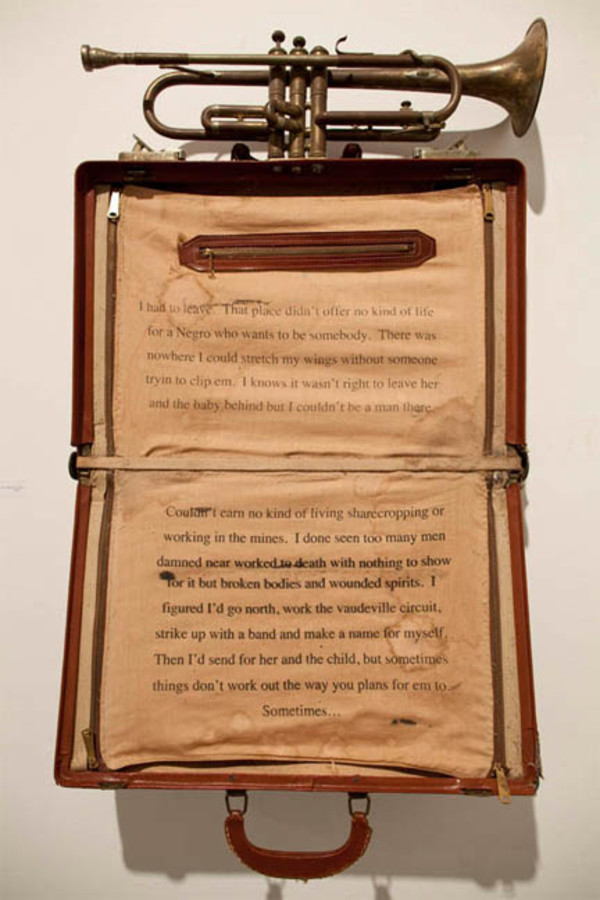 I had to leave. That place didn't offer no kind of life
for a Negro who wants to be somebody. There was
nowhere I could stretch my wings without someone
tryin to clip em. I knows it wasn't right to leave her
and the baby behind but I couldn't be a man there.
Couldn't earn no kind of living sharecropping or
working in the mines. I done seen too many men
damned near worked to death with nothing to show
for it but broken bodies and wounded spirits. I
figured I'd go north, work the vaudeville circuit,
strike up with a band and make a name for myself.
Then I'd send for her and the child, but sometimes
things don't work out the way you plans for em to.
Sometimes...